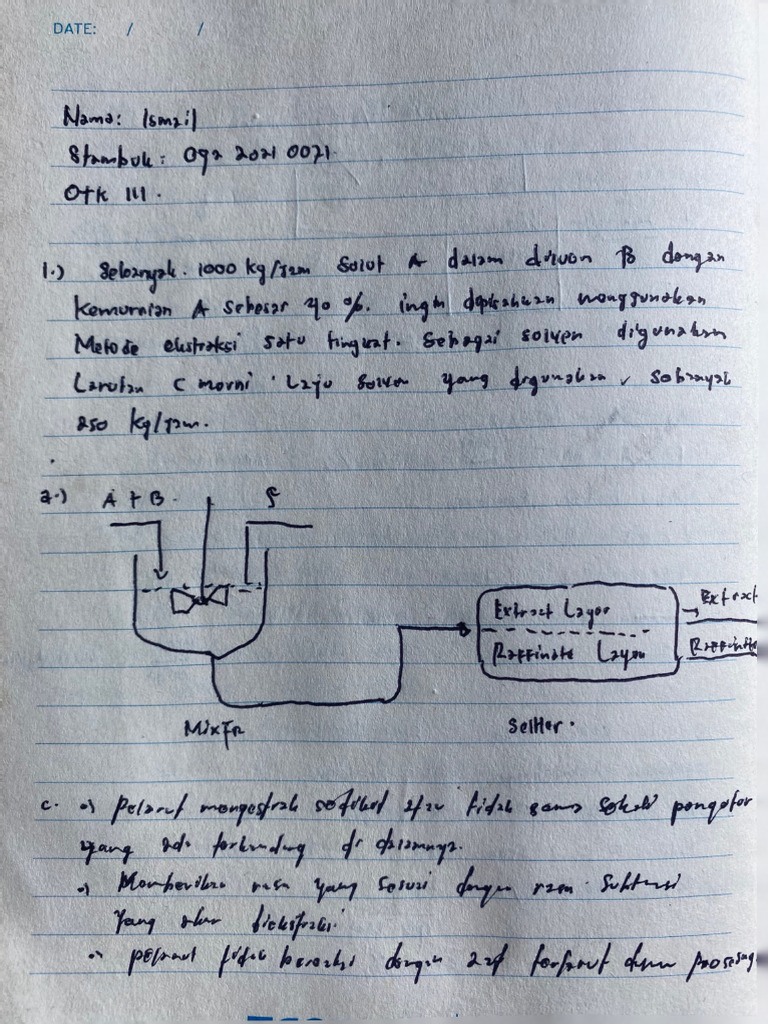 DATE: / /
Nama: Ismail
Stambuk: 092 2021 0071.
OTK III.
1.) Sebanyak. 1000 kg/Jam Solut A dalam diluen B dengan
kemurnian A sebesar 40 %. ingin dipisahkan menggunakan
Metode ekstraksi satu tingkat. Sebagai solven digunakan
Larutan C murni. Laju solven yang digunakan sebanyak
250 kg/Jam.
a.) A + B. S
Extract Layer Extract
Raffinate Layer Raffinate
Mixer Settler.
c. pelarut sedikit atau tidak sama sekali
yang ada terkandung di dalamnya.
Memberikan rasa yang sesuai dengan rasa
yang akan diekstraksi.
pelarut tidak bereaksi dengan zat terlarut